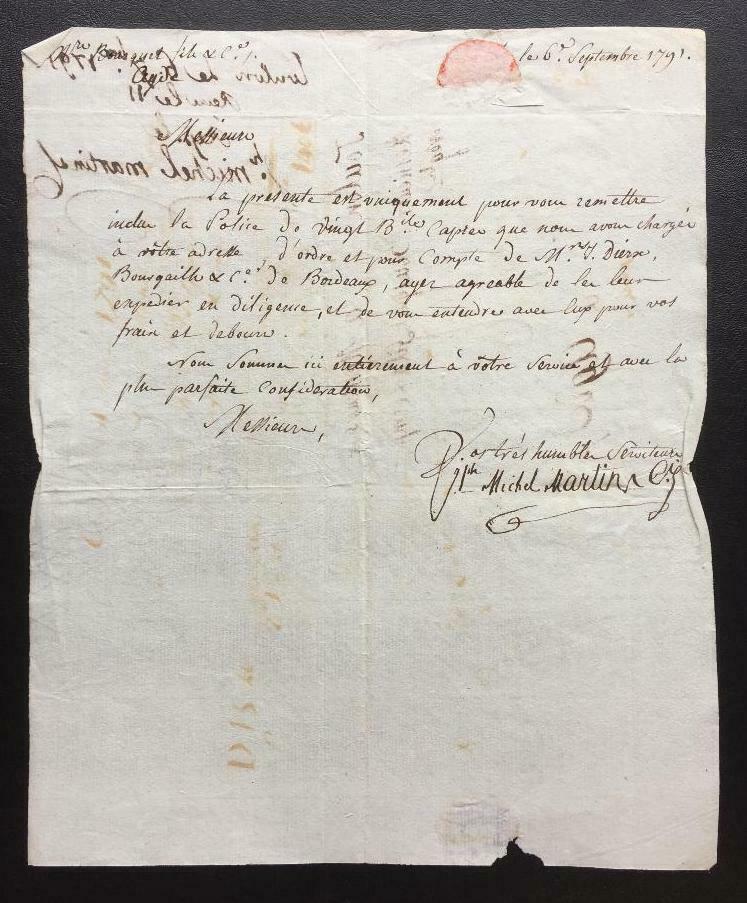 Bousquet fils & C.e
Agde
le 6.e Septembre 1791.
Messieurs
La présente est uniquement pour vous remettre
inclus la Police de vingt B.lles Capres que nous avons chargés
à vôtre adresse, d'ordre et pour Compte de M.rs J. Dierx,
Bousgailh & C.e de Bordeaux, ayez agreable de les leur
expedier en diligence, et de vous entendre avec Eux pour vos
frais et debours.
Nous Sommes ici entièrement à vôtre Service et avec la
plus parfaite Consideration,
Messieurs,
Vos trés humbles Serviteurs
J.ph Michel Martin & C.e
toulon le
Recu le 11
michel martin